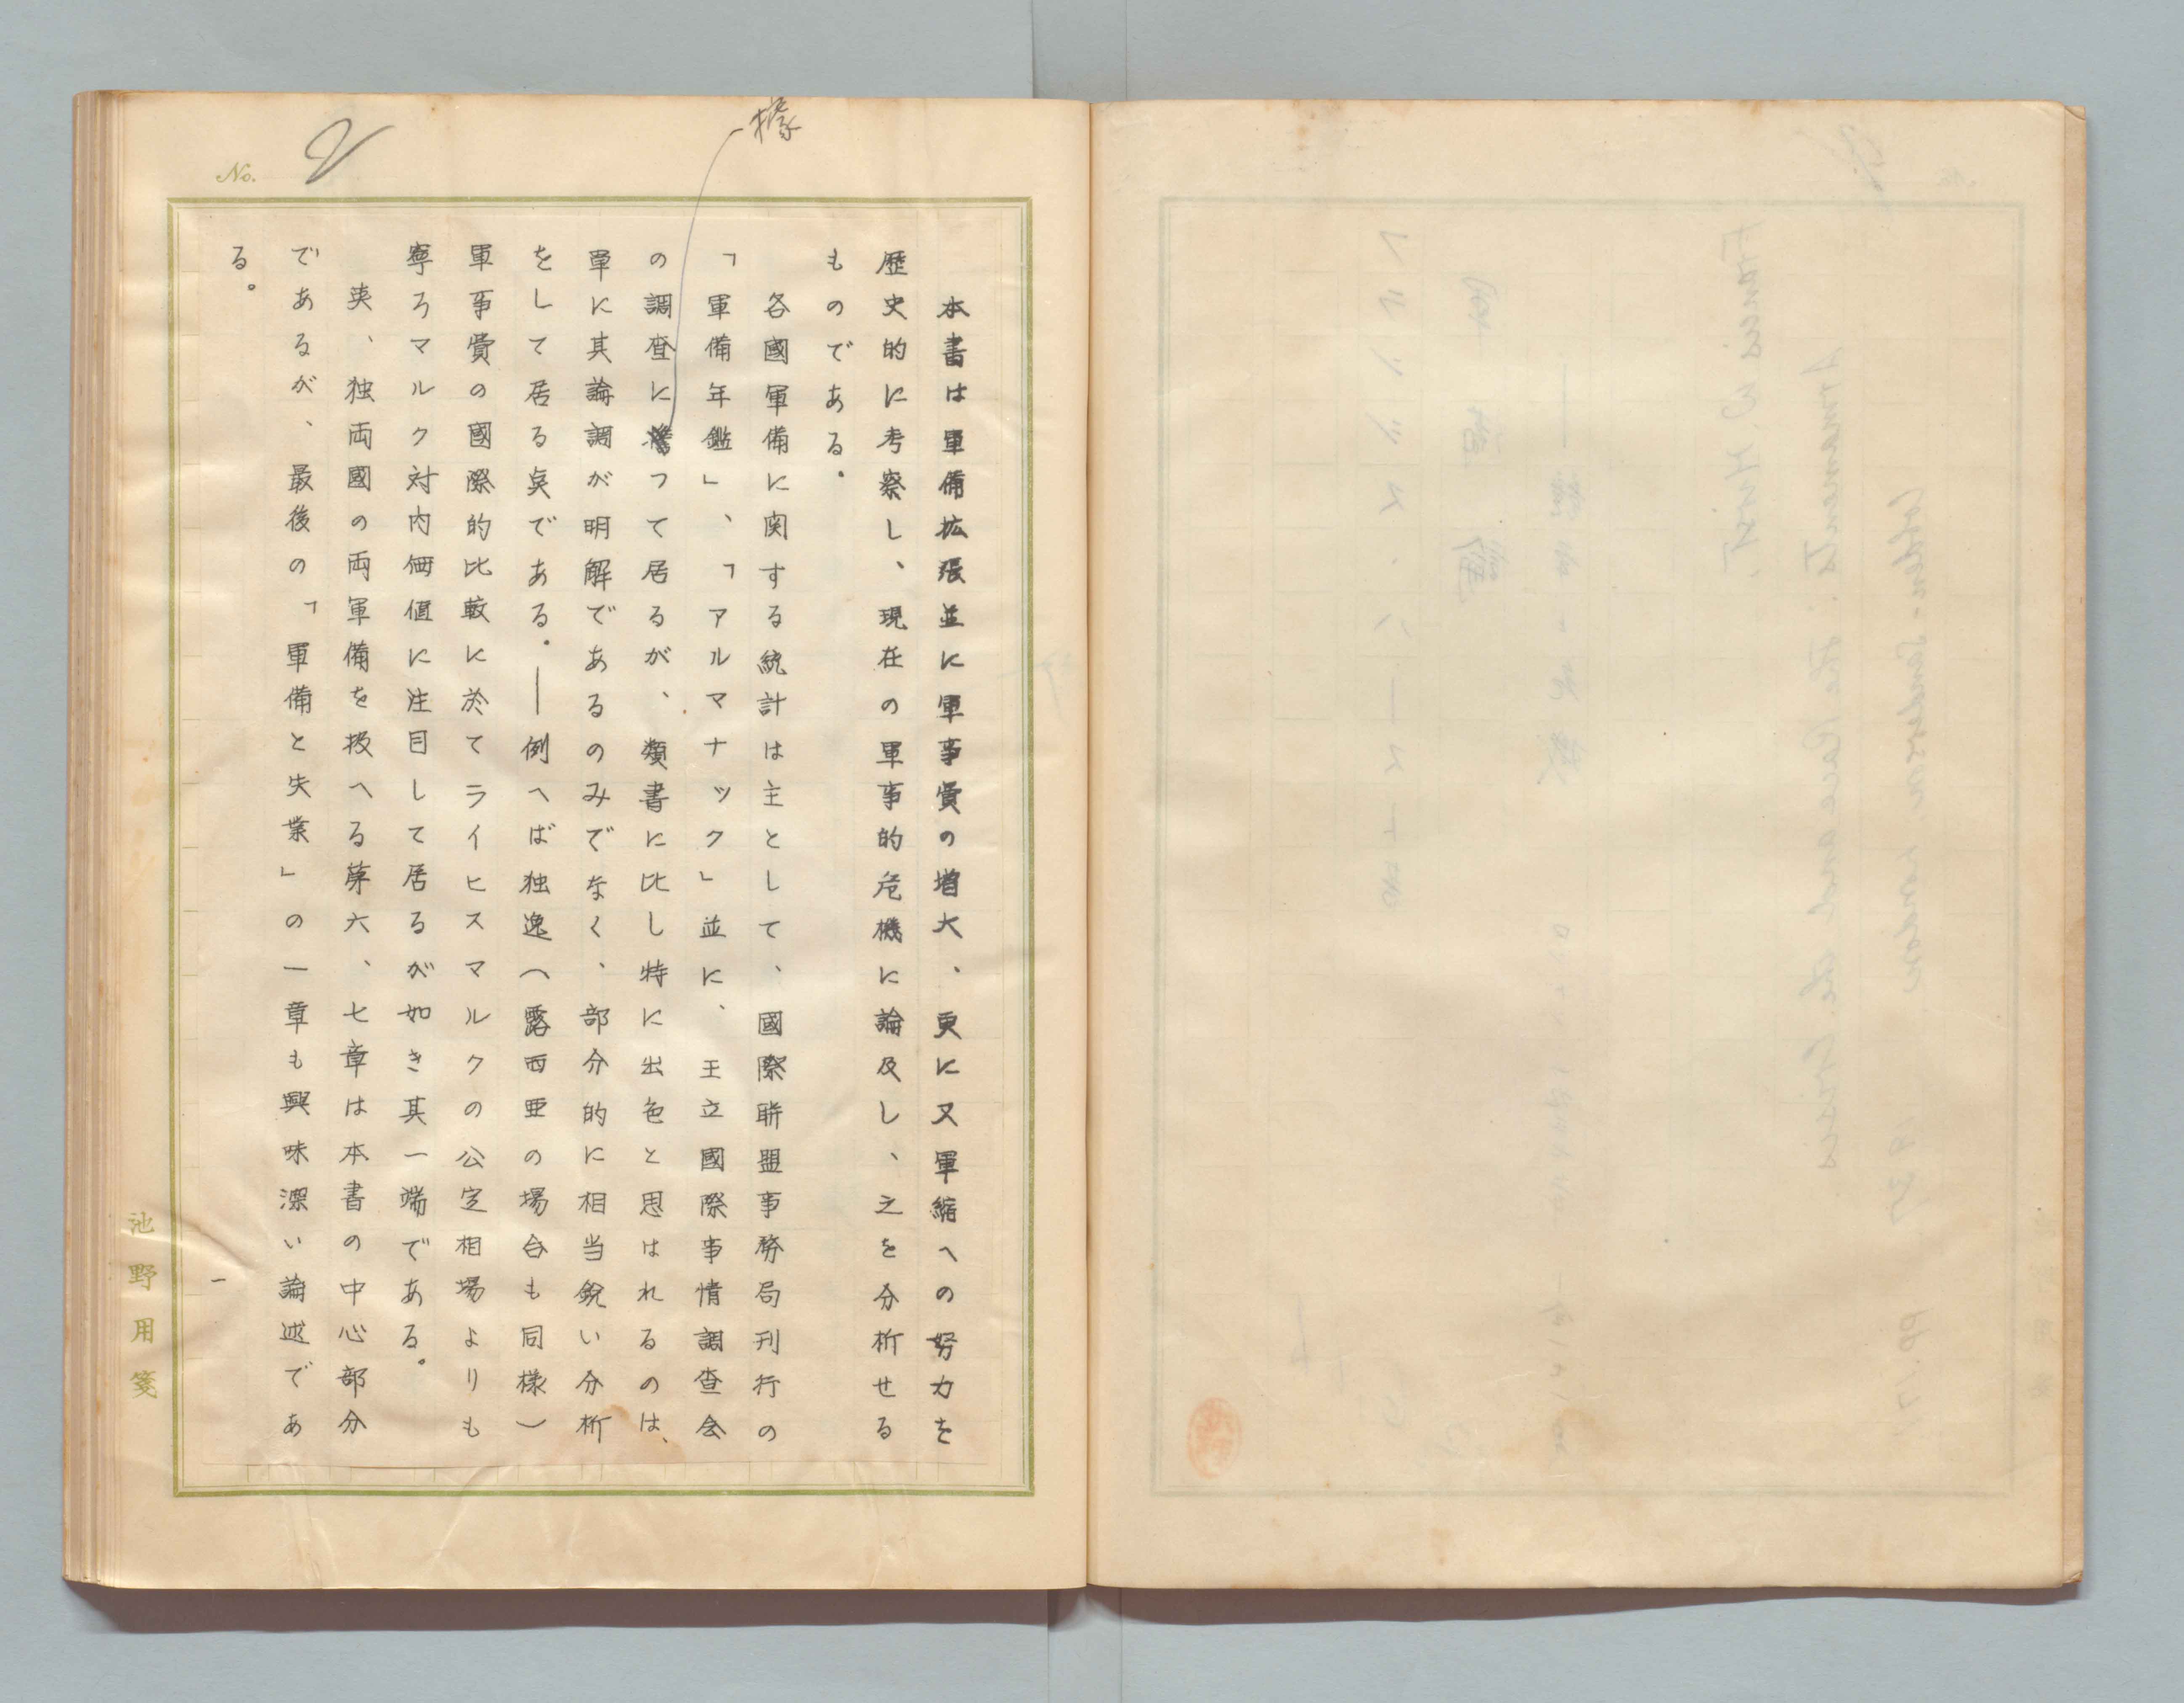 No. 2
據
本書は軍備拡張並に軍事費の増大、更に又軍縮への努力を
歴史的に考察し、現在の軍事的危機に論及し、之を分析せる
ものである。
各國軍備に関する統計は主として、國際聯盟事務局刊行の
「軍備年鑑」、「アルマナック」並に、王立國際事情調査会
の調査に って居るが、類書に比し特に出色と思はれるのは、
単に其論調が明解であるのみでなく、部分的に相当鋭い分析
をして居る点である。――例へば独逸(露西亜の場合も同様)
軍事費の國際的比較に於てライヒスマルクの公定相場よりも
寧ろマルク対内価値に注目して居るが如き其一端である。
英、独両國の両軍備を扱へる第六、七章は本書の中心部分
であるが、最後の「軍備と失業」の一章も興味深い論述であ
る。
一
池野用箋